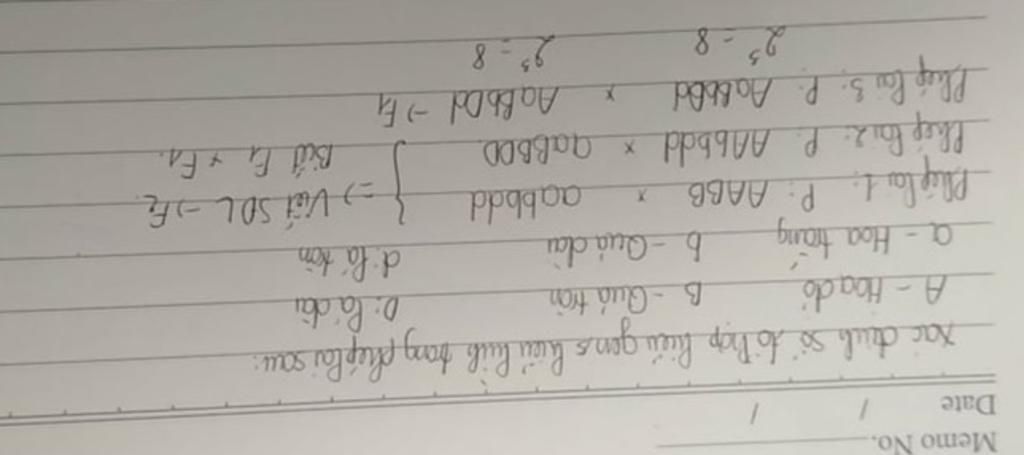 Memo No.
Date / /
Xác định số tổ hợp kiểu gen, kiểu hình trong phép lai sau:
A - Hoa đỏ B - Quả tròn D: lá dài
a - Hoa trắng b - Quả dài d: lá tròn
Phép lai 1: P: AABB x aabbdd } => Viết SDL → F2
Phép lai 2: P: AAbbdd x aaBBDD Biết F1 x F1.
Phép lai 3: P: AaBbDd x AaBbDd → F1
2³ = 8 2³ = 8